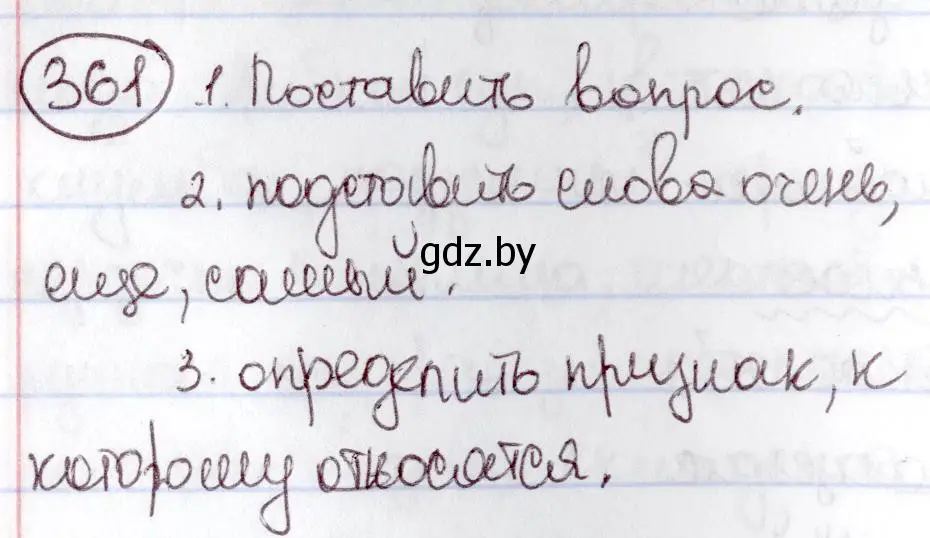 361 1. Поставить вопрос.
2. подставить слова очень,
еще, самый.
gdz.by
3. определить признак, к
которому относятся.